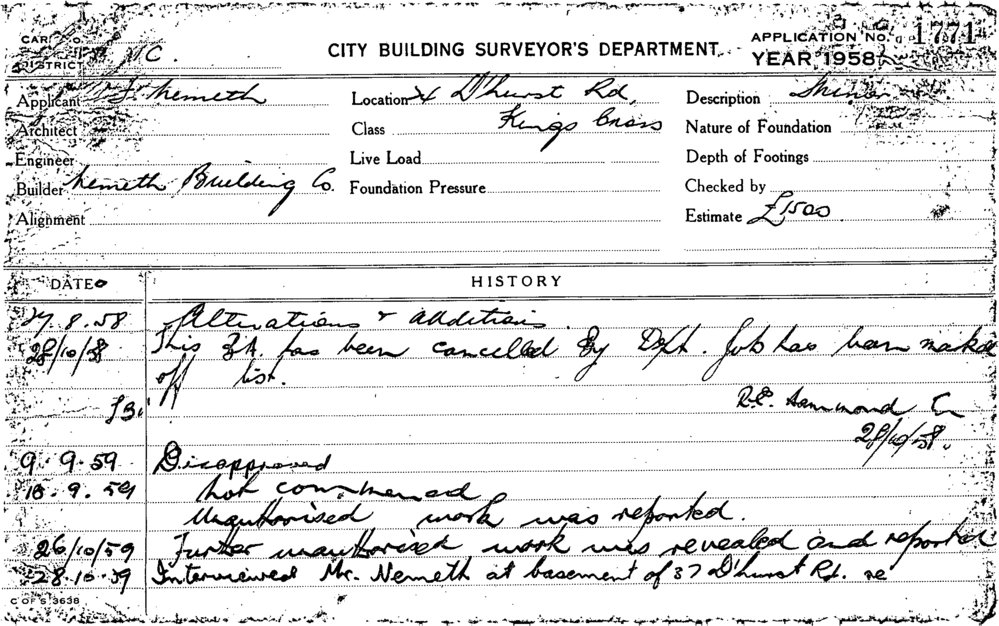 CITY BUILDING SURVEYOR'S DEPARTMENT.
APPLICATION No. 1771
YEAR 1958
CARD No.
DISTRICT
Applicant J. Nemeth
Architect
Engineer
Builder Nemeth Building Co.
Alignment
Location 4 D'hurst Rd,
Class Kings Cross
Live Load
Foundation Pressure
Description
Nature of Foundation
Depth of Footings
Checked by
Estimate £1500
DATE HISTORY
27.8.58 Alterations & additions.
28/10/58 This B.A. has been cancelled By Dept. Job has been marked
off list.
R.E. Hammond
28/10/58.
9.9.59 Disapproved
.9.59 Not commenced
Unauthorised work was reported.
26/10/59 Further unauthorised work was revealed and reported
28.10.59 Interviewed Mr. Nemeth at basement of 37 D'hurst Rd. re
C OF S 3638